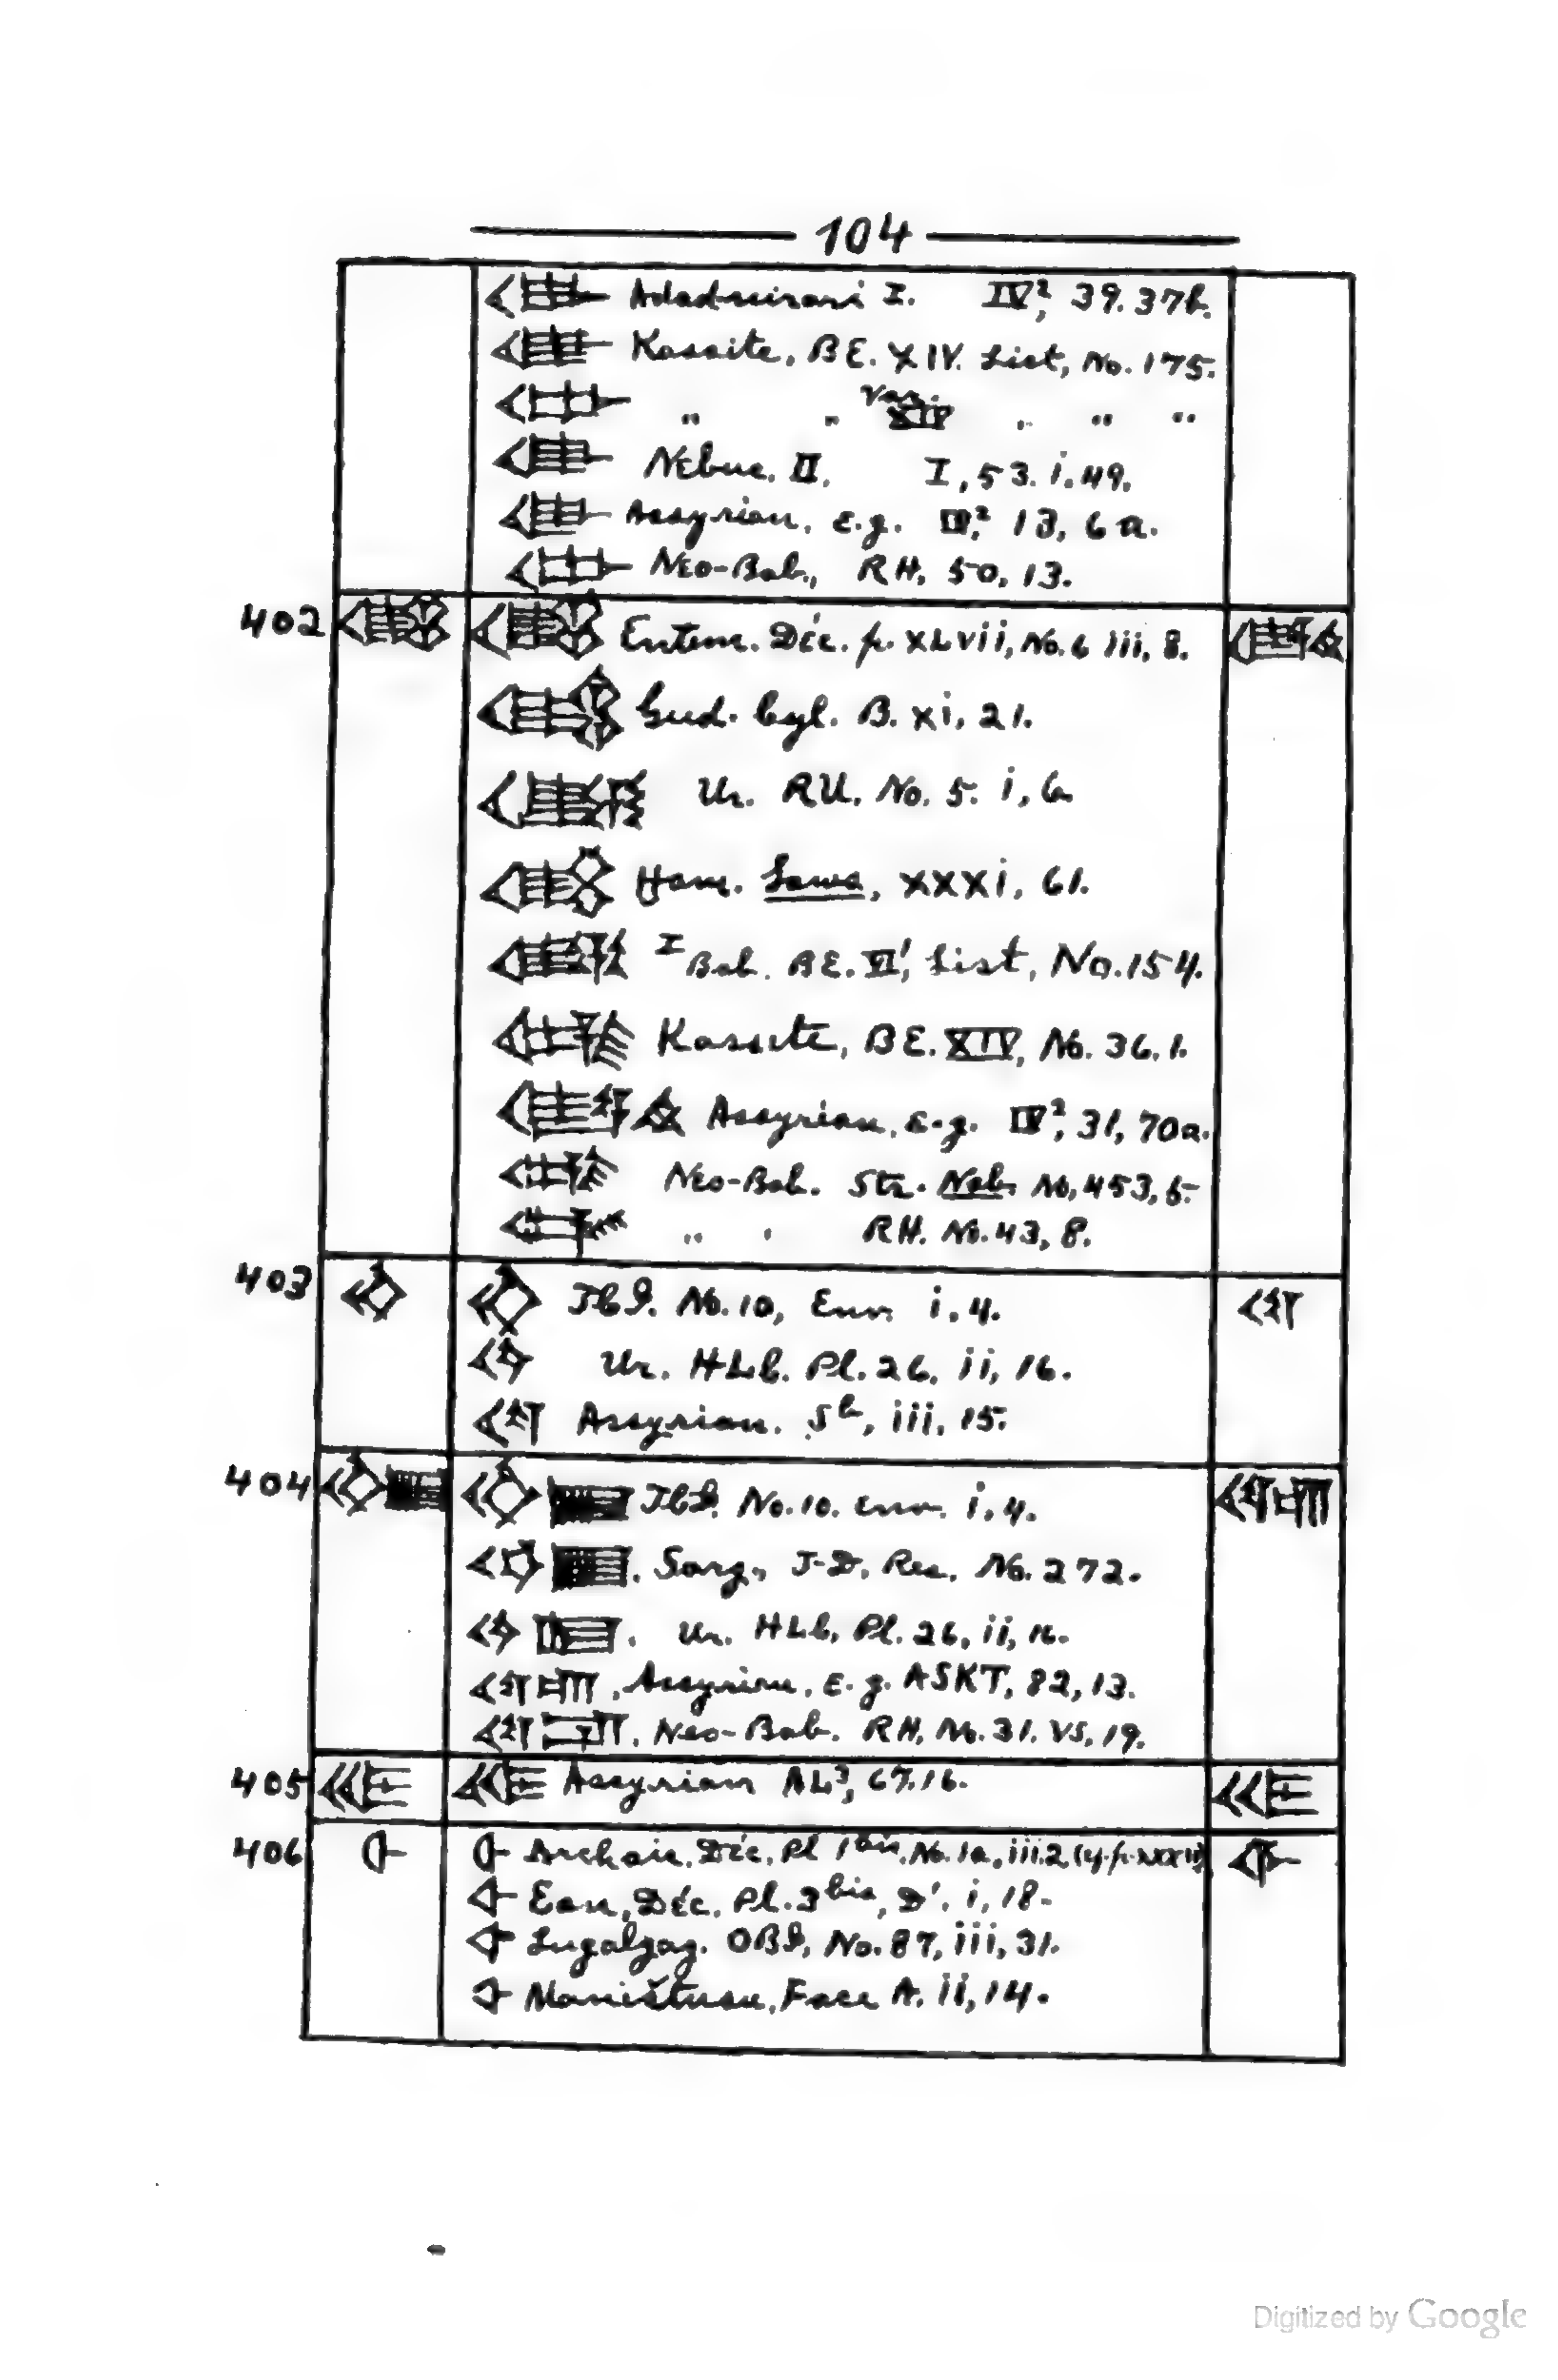 104
Adadnirari I. IV², 39. 37b.
Kassite, BE. XIV. List, No. 175.
„ „ Var. XIV „ „ „
Nebuc. II. I, 53. i. 49.
Assyrian, e.g. 13, 6a.
Neo-Bab., RH, 50, 13.
402 Entem. Déc. p. XLvii, No. 6 iii, 8.
Gud. Cyl. B. xi, 21.
Ur. RU. No. 5. i, 6.
Ham. Laws, xxxi, 61.
I Bab. BE. VI¹, List, No. 154.
Kassite, BE. XIV, No. 36. 1.
Assyrian, e.g. IV², 31, 70a.
Neo-Bab. Str. Nab. No. 453, 5.
„ „ RH. No. 43, 8.
403 No. 10, i, 4.
Ur. HLb. Pl. 26, ii, 16.
Assyrian. Sᵇ, iii, 15.
404 No. 10. i, 4.
Sarg., No. 272.
Ur. HLb, Pl. 26, ii, 16.
Assyrian, e.g. ASKT, 82, 13.
Neo-Bab. RH, No. 31. VS, 19.
405 Assyrian AL³, 67. 16.
406 Archaic, Déc. Pl 1bis, No. 1a, iii. 2
Ean, Déc. Pl. 3bis, D¹. i, 18.
Lugalzag. OBI, No. 87, iii, 31.
Maništusu, Face A. ii, 14.
Digitized by Google